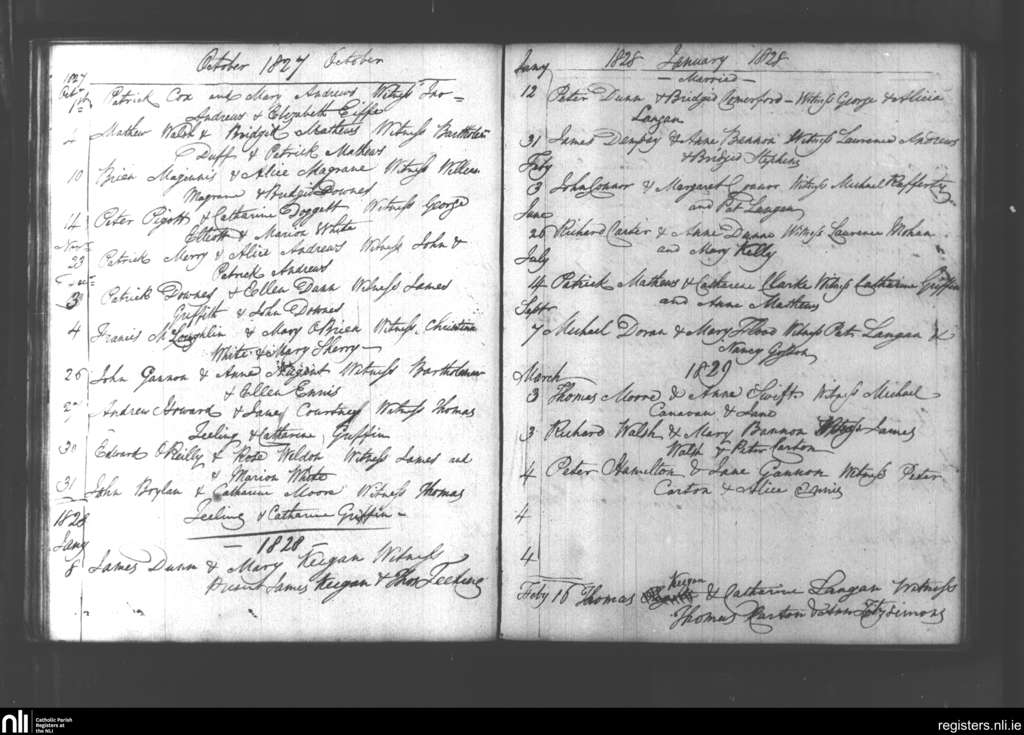 October 1827 October
1827
Octr
1st Patrick Cox and Mary Andrews Witness Jno =
Andrews & Elizabeth Eiffe
4 Mathew Walsh & Bridget Mathews Witness Barthol
Duff & Patrick Mathews
10 Brien Maginnis & Alice Magrane Witness William
Magrane & Bridget Downes
14 Peter Pigott & Catharine Doggett Witness George
Elliott & Marion White
Novr
23 Patrick Merry & Alice Andrews Witness John &
Patrick Andrews
Decr
3 Patrick Downes & Ellen Dunn Witness James
Griffith & John Downes
4 Francis McLoughlin & Mary OBrien Witness Christina
White & Mary Sherry
26 John Gannon & Anne Nugent Witness Bartholomew
& Ellen Ennis
Andrew Howard & Jane Courtney Witness Thomas
Teeling & Catharine Griffin
30 Edward OReilly & Rose Weldon Witness James and
& Marion White
31 John Boylan & Catharine Moore Witness Thomas
Teeling & Catharine Griffin
1828
Jany
— 1828 —
8 James Dunn & Mary Keegan Witness
James Keegan & Thos Teeling
Jany 1828 January 1828
— Married —
12 Peter Dunn & Bridget Comerford — Witness George & Alicia
Langan
31 James Dempsy & Anne Bannon Witness Laurence Andrews
& Bridget Stephens
Feby
3 John Connor & Margaret Connor Witness Michael Rafferty
and Pat Langan
June
26 Richard Carter & Anne Dunne Witness Laurence Mohan
and Mary Kelly
July
14 Patrick Mathews & Catherene Clarke Witness Catharine Griffin
and Anne Mathews
Septr
7 Michael Doran & Mary Flood Witness Patr Langan &
Nancy Gosson
1829
March
3 Thomas Moore & Anne Swift Witness Michael
Canavan & Jane
3 Richard Walsh & Mary Bannon Witness James
Walsh & Peter Carton
4 Peter Hamilton & Jane Gannon Witness Peter
Carton & Alice Ennis
4
4
Keegan
Feby 16 Thomas & Catharine Langan Witness
Thomas Carton & Ann Fitzsimons
nli
Catholic Parish
Registers at
the NLI
registers.nli.ie